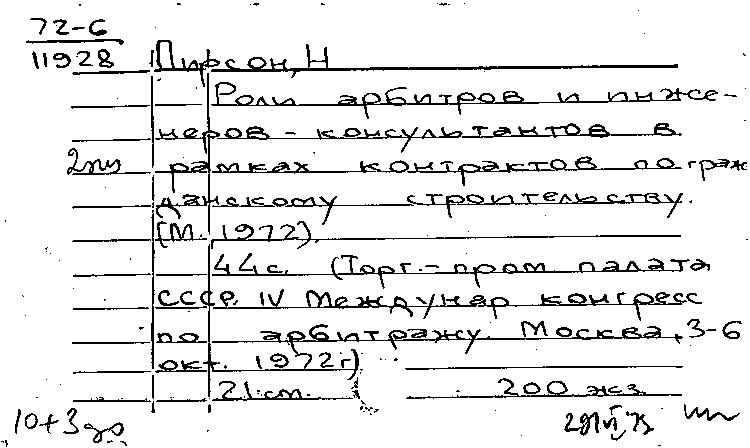 72-6
11928
Пирсон, Н
Роли арбитров и инже-
неров-консультантов в
2пи рамках контрактов по граж
данскому строительству.
[М. 1972].
44с. (Торг.-пром палата
СССР. IV Междунар конгресс
по арбитражу. Москва, 3-6
окт. 1972г)
21 cm. 200 экз.
10+3